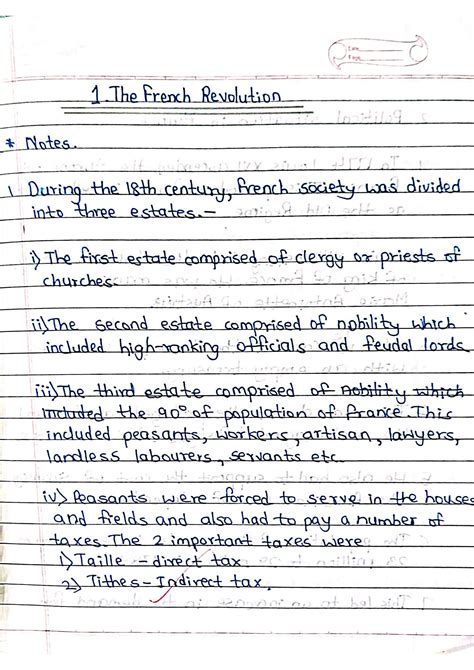 1. The French Revolution
* Notes.
1. During the 18th century, French society was divided
into three estates.-
i) The first estate comprised of clergy or priests of
churches.
ii) The second estate comprised of nobility which
included high-ranking officials and feudal lords
iii) The third estate comprised of nobility which
included the 90° of population of france. This
included peasants, workers, artisan, lawyers,
landless labourers, servants etc
iv) Peasants were forced to serve in the houses
and fields and also had to pay a number of
taxes. The 2 important taxes were
1) Taille - direct tax
2) Tithes - Indirect tax.